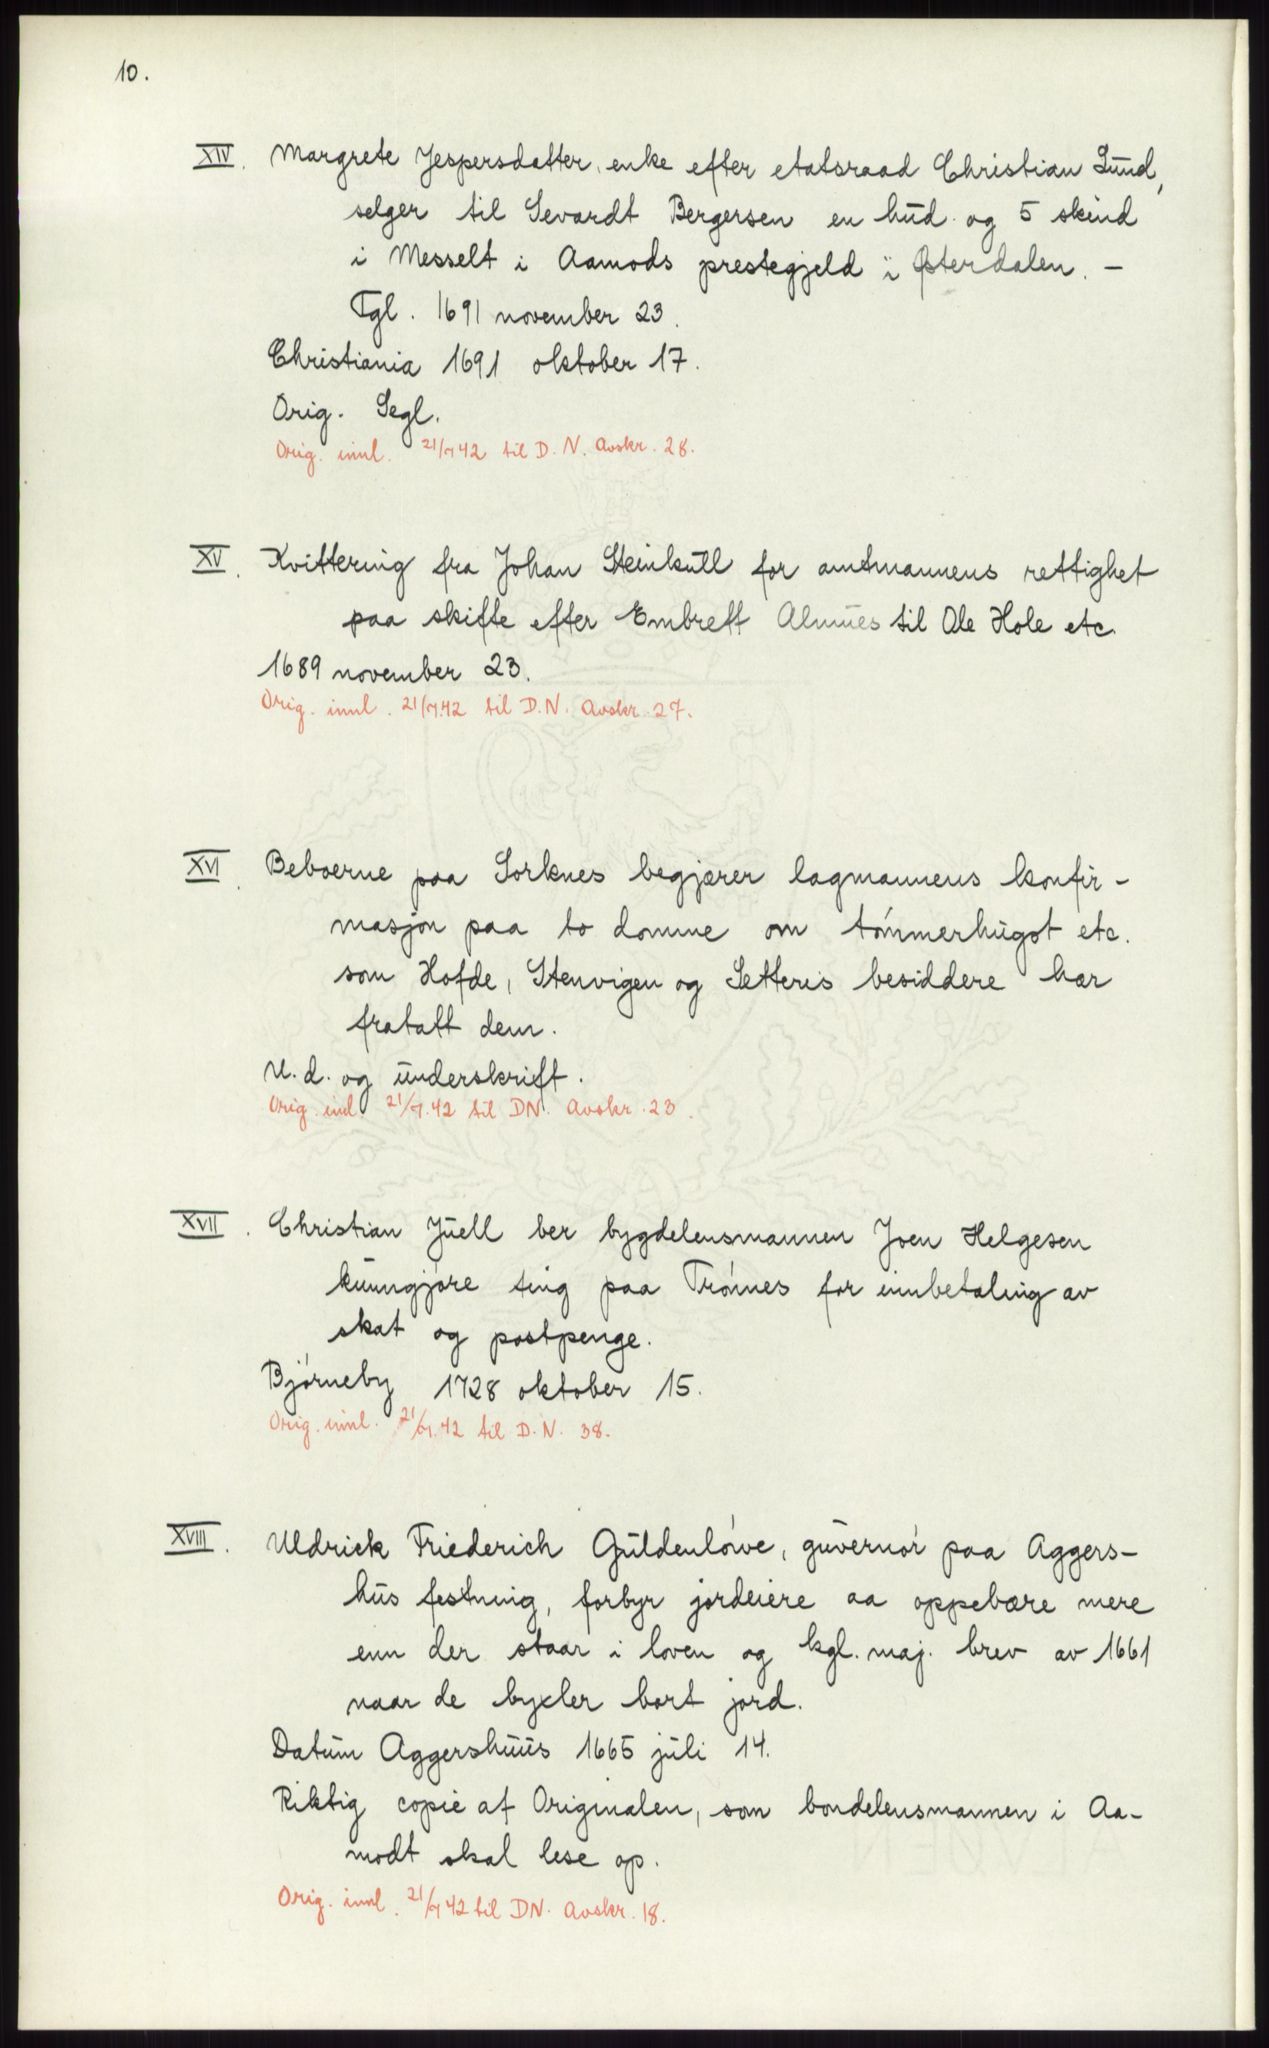 10.
XIV. Margrete Jespersdatter, enke efter etatsraad Christian Lund,
selger til Sevardt Bergersen en hud og 5 skind
i Messelt i Aamods prestegjeld i Østerdalen. -
Tgl. 1691 november 23.
Christiania 1691 oktober 17.
Orig. Segl.
Orig. innl. 21/7 42 til D. N. Avskr. 28.
XV. Kvittering fra Johan Steinkull for amtmannens rettighet
paa skifte efter Embrett Almues til Ole Hole etc.
1689 november 23.
Orig. innl. 21/7.42 til D.N. Avskr. 27.
XVI. Beboerne paa Sorknes begjærer lagmannens konfir-
masjon paa to domme om tømmerhugst etc.
som Hofde, Stenvigen og Setteris besiddere har
fratatt dem.
U. d. og underskrift.
Orig. inl 21/7.42 til DN. Avskr. 23.
XVII. Christian Juell ber bygdelensmannen Joen Helgesen
kunngjøre ting paa Trønnes for innbetaling av
skat og postpenge.
Bjørneby 1728 oktober 15.
Orig. innl. 21/7.42 til D. N. 38.
XVIII. Uldrick Friederich Guldenløwe, guvernør paa Aggers-
hus festning, forbyr jordeiere aa oppebære mere
enn der staar i loven og kgl. maj. brev av 1661
naar de bygler bort jord.
Datum Aggershuus 1665 juli 14.
Riktig copie af Originalen, som bondelensmannen i Aa-
modt skal lese op.
Orig. innl. 21/7 42 til DN. Avskr. 18.